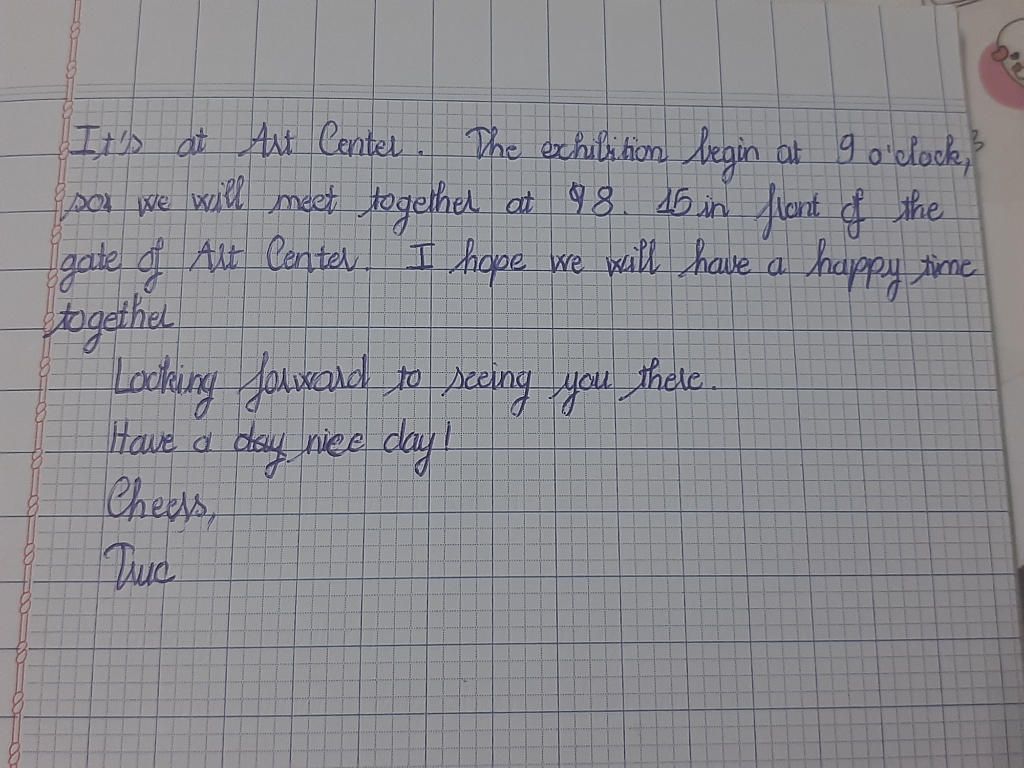 It's at Art Center. The exhibition begin at 9 o'clock,
so we will meet together at 8.15 in front of the
gate of Art Center. I hope we will have a happy time
together
Looking forward to seeing you there.
Have a day nice day!
Cheers,
Truc